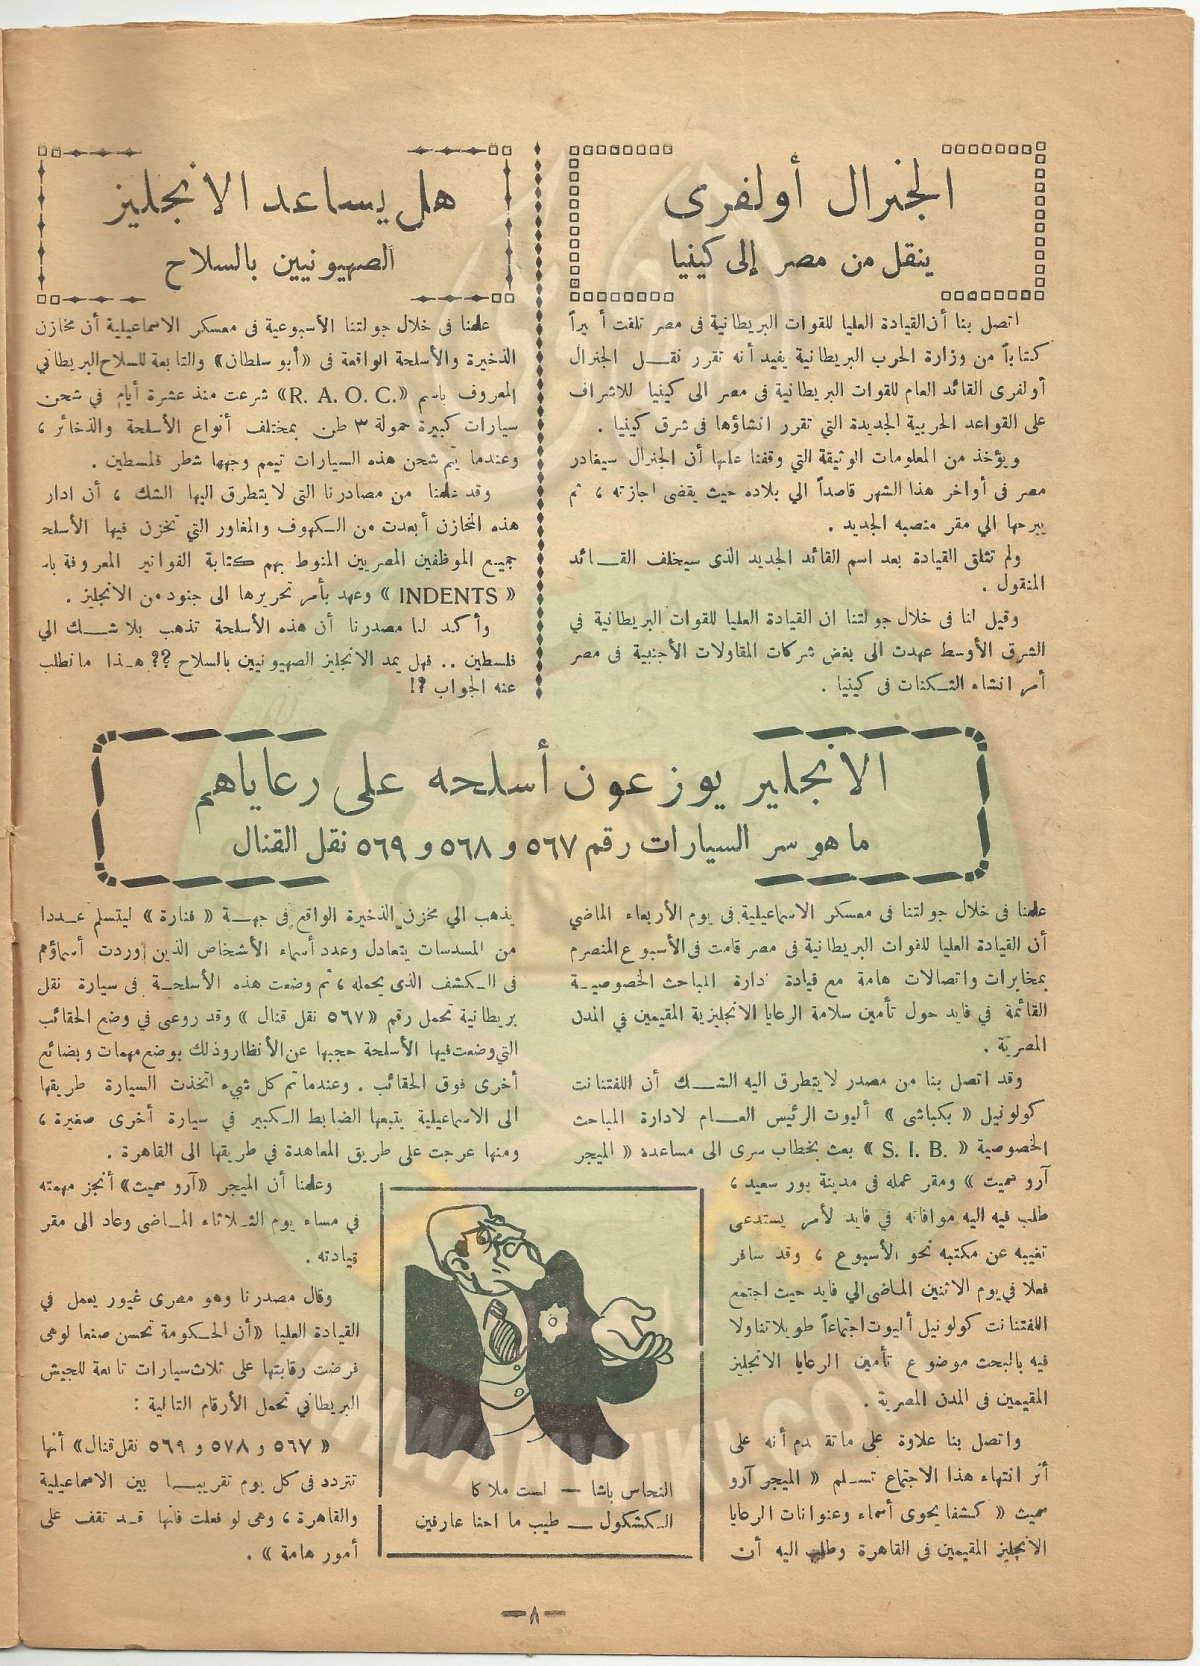 الجنرال أولفرى
ينقل من مصر إلى كينيا
اتصل بنا أن القيادة العليا للقوات البريطانية فى مصر تلقت أخيراً
كتاباً من وزارة الحرب البريطانية يفيد أنه تقرر نقل الجنرال
أولفرى القائد العام للقوات البريطانية فى مصر الى كينيا للاشراف
على القواعد الحربية الجديدة التي تقرر انشاؤها فى شرق كينيا .
ويؤخذ من المعلومات الوثيقة التي وقفنا عليها أن الجنرال سيغادر
مصر فى أواخر هذا الشهر قاصداً الي بلاده حيث يقضى اجازته ، ثم
يبرحها الي مقر منصبه الجديد .
ولم تتلق القيادة بعد اسم القائد الجديد الذى سيخلف القائد
المنقول .
وقيل انا فى خلال جولتنا ان القيادة العليا للقوات البريطانية في
الشرق الأوسط عهدت الى بعض شركات المقاولات الأجنبية فى مصر
أمر انشاء الثكنات فى كينيا .
هل يساعد الانجليز
الصهيونيين بالسلاح
علمنا فى خلال جولتنا الأسبوعية فى معسكر الاسماعيلية أن مخازن
الذخيرة والأسلحة الواقعة فى «أبو سلطان» والتابعة للسلاح البريطاني
المعروف باسم «R. A. O. C.» شرعت منذ عشرة أيام في شحن
سيارات كبيرة حمولة ٣ طن بمختلف أنواع الأسلحة والذخائر ،
وعندما يتم شحن هذه السيارات تيمم وجهها شطر فلسطين .
وقد علمنا من مصادرنا التى لا يتطرق اليها الشك ، أن ادار
هذه المخازن أبعدت من الكهوف والمغاور التي تخزن فيها الأسلح
جميع الموظفين المصريين المنوط بهم كتابة الفواتير المعروفة باس
« INDENTS » وعهد بأمر تحريرها الى جنود من الانجليز .
وأكد لنا مصدرنا أن هذه الأسلحة تذهب بلا شك الي
فلسطين .. فهل يمد الانجليز الصهيونيين بالسلاح ؟؟ هذا ما نطلب
عنه الجواب ؟!
الانجليز يوزعون أسلحه على رعاياهم
ما هو سر السيارات رقم ٥٦٧ و ٥٦٨ و ٥٦٩ نقل القنال
علمنا فى خلال جولتنا فى معسكر الاسماعيلية فى يوم الأربعاء الماضي
أن القيادة العليا للقوات البريطانية فى مصر قامت فى الأسبوع المنصرم
بمخابرات واتصالات هامة مع قيادة ادارة المباحث الخصوصية
القائمة في فايد حول تأمين سلامة الرعايا الانجليزية المقيمين في المدن
المصرية .
وقد اتصل بنا من مصدر لا يتطرق اليه الشك أن اللفتنانت
كولونيل « بكباشى » أليوت الرئيس العام لادارة المباحث
الخصوصية « S. I. B. » بعث بخطاب سرى الى مساعدة « الميجر
آرو سميث » ومقر عمله فى مدينة بور سعيد ،
طلب فيه اليه موافاته في فايد لأمر يستدعى
تغيبه عن مكتبه نحو الأسبوع ، وقد سافر
فعلا في يوم الاثنين الماضى الي فايد حيث اجتمع
اللفتنانت كولونيل أليوت اجتماعاً طويلا تناولا
فيه بالبحث موضوع تأمين الرعايا الانجليز
المقيمين فى المدن المصرية .
واتصل بنا علاوة على ما تقدم أنه على
أثر انتهاء هذا الاجتماع تسلم « الميجر آرو
سميث « كشفا يحوى أسماء وعنوانات الرعايا
الانجليز المقيمين فى القاهرة وطلب اليه أن
يذهب الي مخزن الذخيرة الواقع فى جهة « فنارة » ليتسلم عددا
من المسدسات يتعادل وعدد أسماء الأشخاص الذين وردت أسماؤهم
فى الكشف الذى يحمله ، ثم وضعت هذه الأسلحة فى سيارة نقل
بريطانية تحمل رقم «٥٦٧ نقل قنال » وقد روعى في وضع الحقائب
التي وضعت فيها الأسلحة حجبها عن الأنظار وذلك بوضع مهمات وبضائع
أخرى فوق الحقائب . وعندما تم كل شيء اتخذت السيارة طريقها
الى الاسماعيلية يتبعها الضابط الكبير في سيارة أخرى صغيرة ،
ومنها عرجت على طريق المعاهدة في طريقها الى القاهرة .
وعلمنا أن الميجر «آرو سميث» أنجز مهمته
في مساء يوم الثلاثاء الماضى وعاد الى مقر
قيادته .
وقال مصدرنا وهو مصرى غيور يعمل في
القيادة العليا «أن الحكومة تحسن صنعا لو هى
فرضت رقابتها على ثلاث سيارات تابعة للجيش
البريطاني تحمل الأرقام التالية :
« ٥٦٧ و ٥٧٨ و ٥٦٩ نقل قنال» أنها
تتردد فى كل يوم تقريبا بين الاسماعيلية
والقاهرة ، وهى لو فعلت فانها قد تقف على
أمور هامة » .
النحاس باشا — لست ملاكا
الكشكول — طيب ما احنا عارفين
—٨—